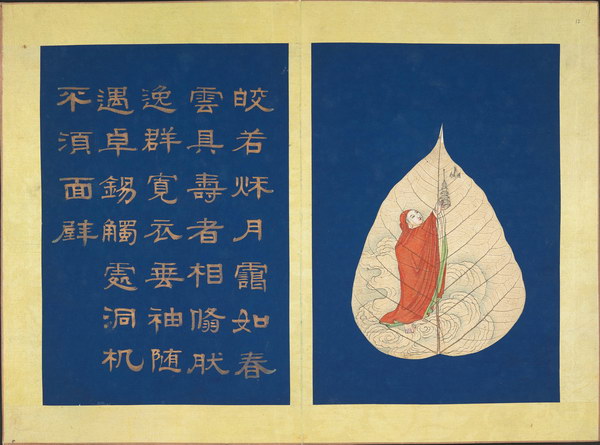 皎若秌月靄如春
雲具壽者相翛肰
逸群寬衣垂袖随
遇卓錫觸處洞机
不須面壁